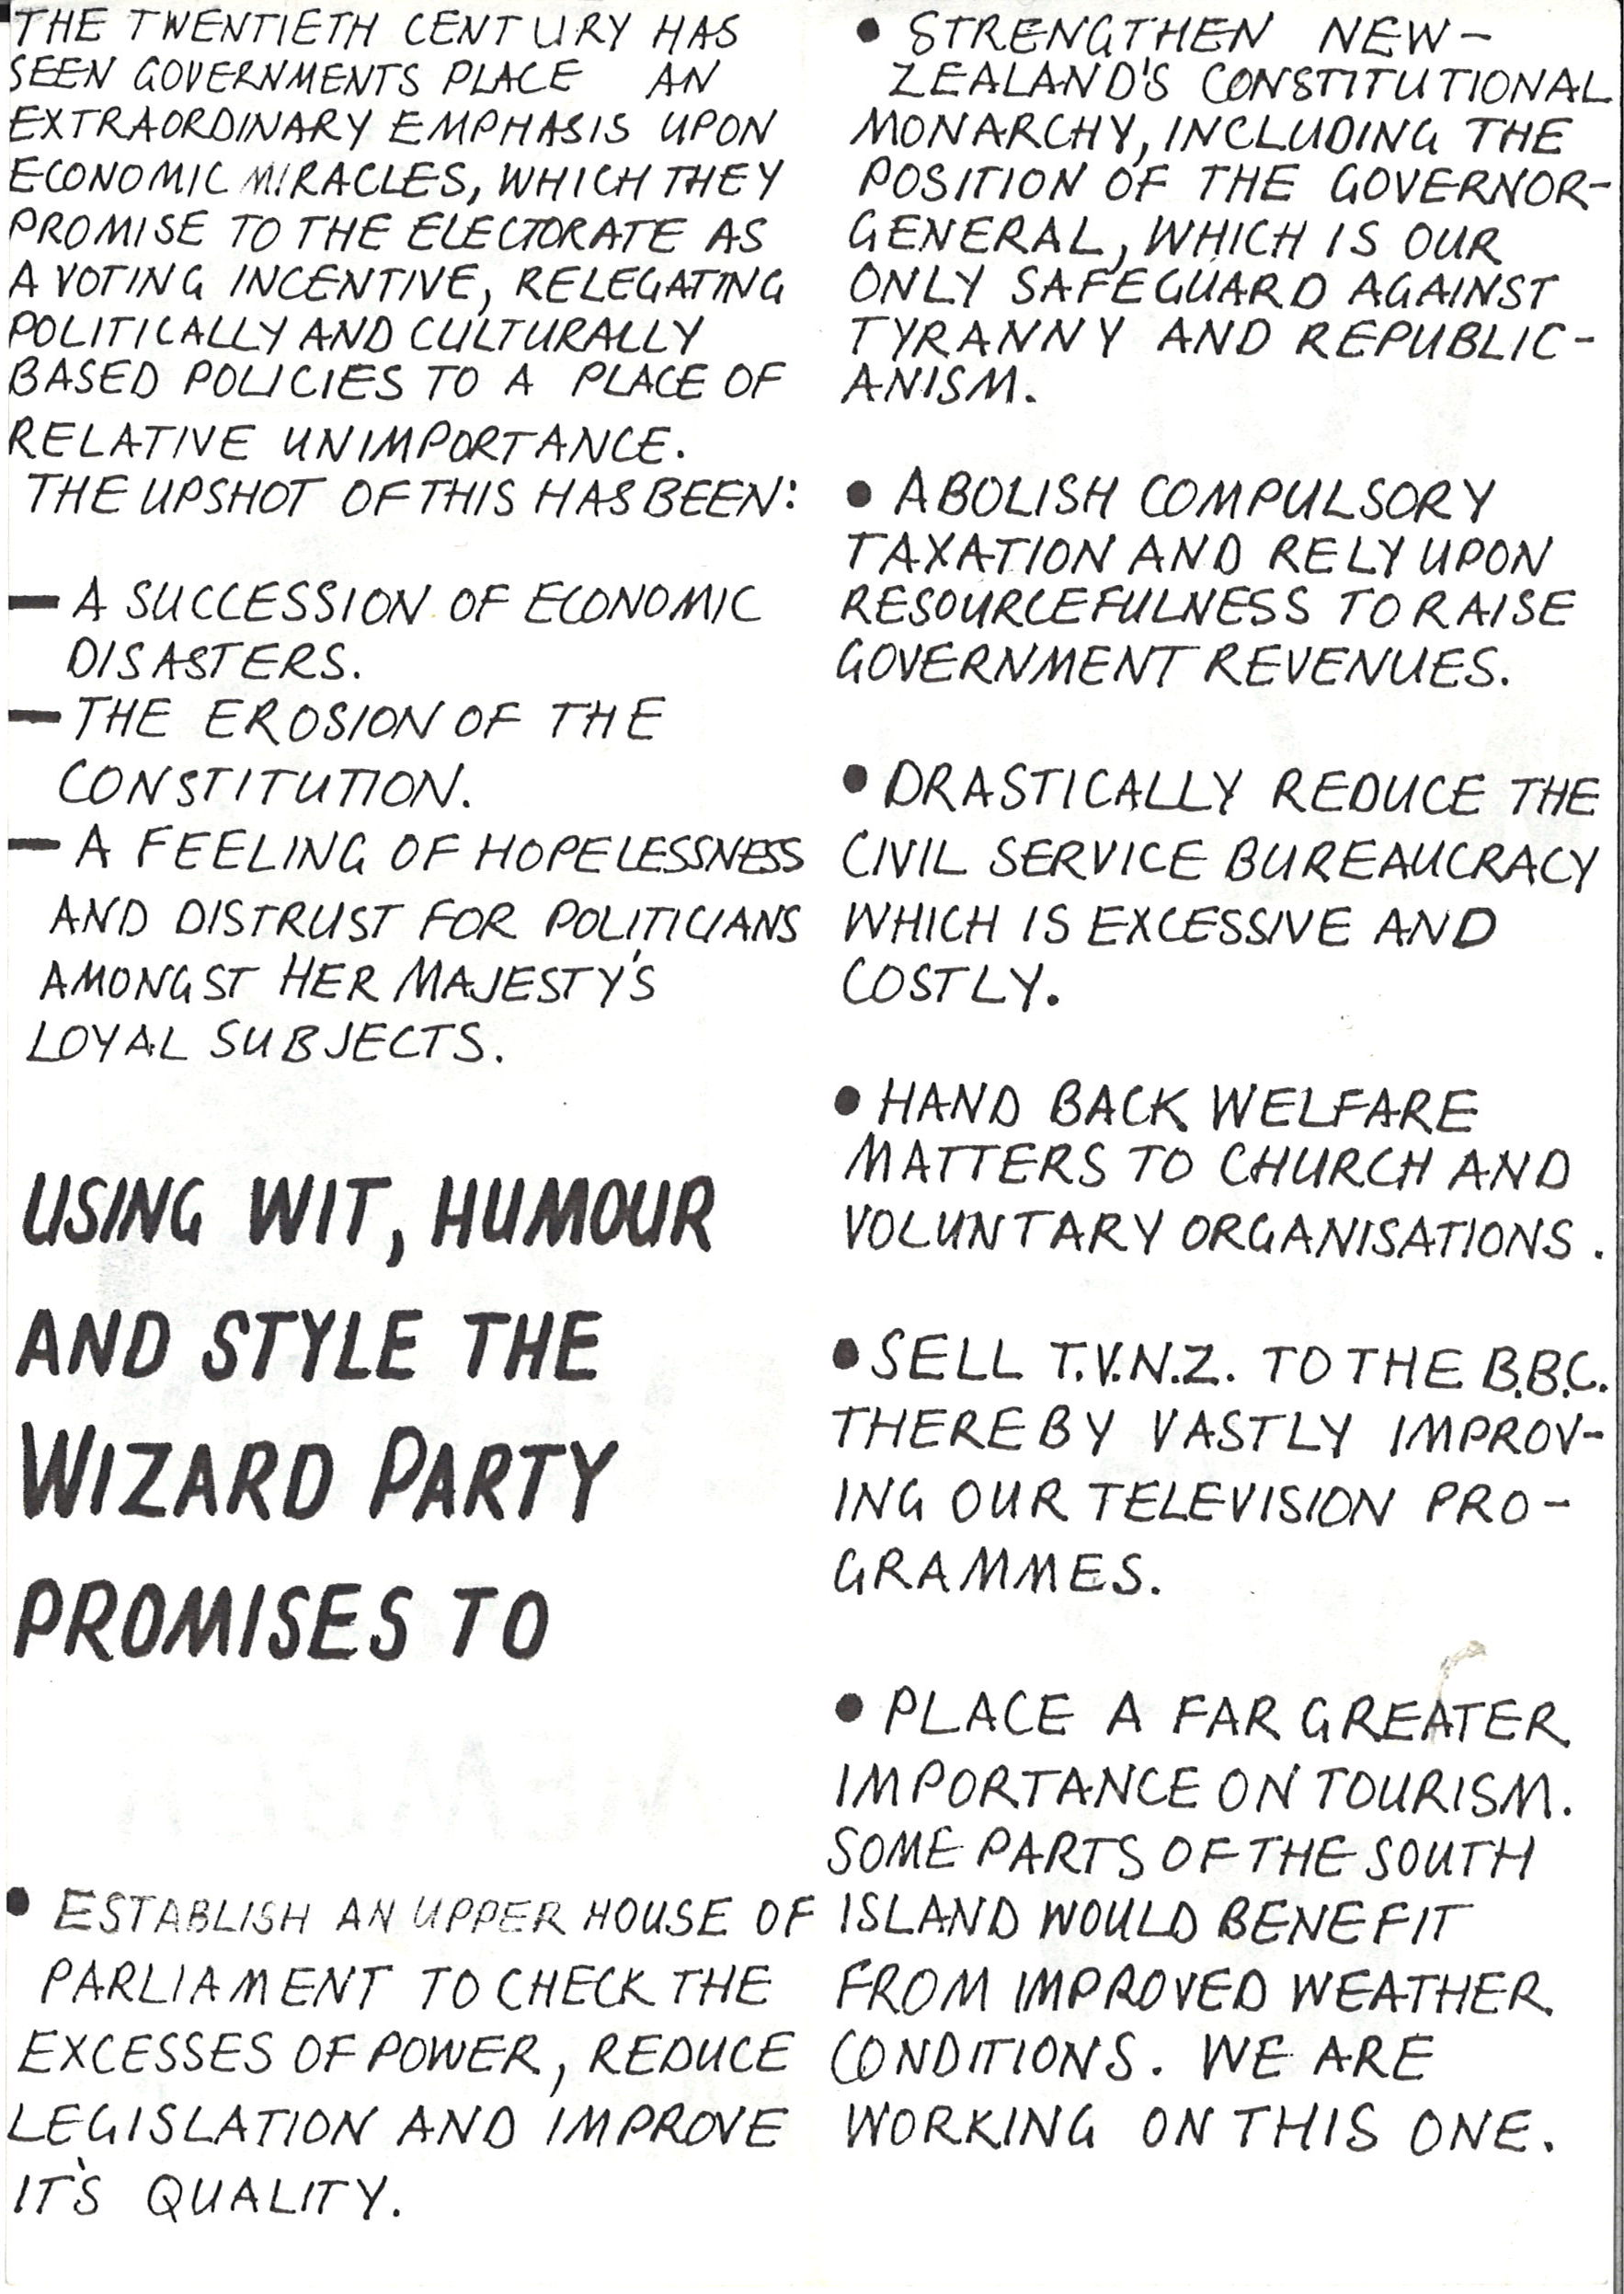 THE TWENTIETH CENTURY HAS
SEEN GOVERNMENTS PLACE AN
EXTRAORDINARY EMPHASIS UPON
ECONOMIC MIRACLES, WHICH THEY
PROMISE TO THE ELECTORATE AS
A VOTING INCENTIVE, RELEGATING
POLITICALLY AND CULTURALLY
BASED POLICIES TO A PLACE OF
RELATIVE UNIMPORTANCE.
THE UPSHOT OF THIS HAS BEEN:
— A SUCCESSION OF ECONOMIC
DISASTERS.
— THE EROSION OF THE
CONSTITUTION.
— A FEELING OF HOPELESSNESS
AND DISTRUST FOR POLITICIANS
AMONGST HER MAJESTY'S
LOYAL SUBJECTS.
USING WIT, HUMOUR
AND STYLE THE
WIZARD PARTY
PROMISES TO
• ESTABLISH AN UPPER HOUSE OF
PARLIAMENT TO CHECK THE
EXCESSES OF POWER, REDUCE
LEGISLATION AND IMPROVE
IT'S QUALITY.
• STRENGTHEN NEW-
ZEALAND'S CONSTITUTIONAL
MONARCHY, INCLUDING THE
POSITION OF THE GOVERNOR-
GENERAL, WHICH IS OUR
ONLY SAFEGUARD AGAINST
TYRANNY AND REPUBLIC-
ANISM.
• ABOLISH COMPULSORY
TAXATION AND RELY UPON
RESOURCEFULNESS TO RAISE
GOVERNMENT REVENUES.
• DRASTICALLY REDUCE THE
CIVIL SERVICE BUREAUCRACY
WHICH IS EXCESSIVE AND
COSTLY.
• HAND BACK WELFARE
MATTERS TO CHURCH AND
VOLUNTARY ORGANISATIONS.
• SELL T.V.N.Z. TO THE B.B.C.
THEREBY VASTLY IMPROV-
ING OUR TELEVISION PRO-
GRAMMES.
• PLACE A FAR GREATER
IMPORTANCE ON TOURISM.
SOME PARTS OF THE SOUTH
ISLAND WOULD BENEFIT
FROM IMPROVED WEATHER
CONDITIONS. WE ARE
WORKING ON THIS ONE.